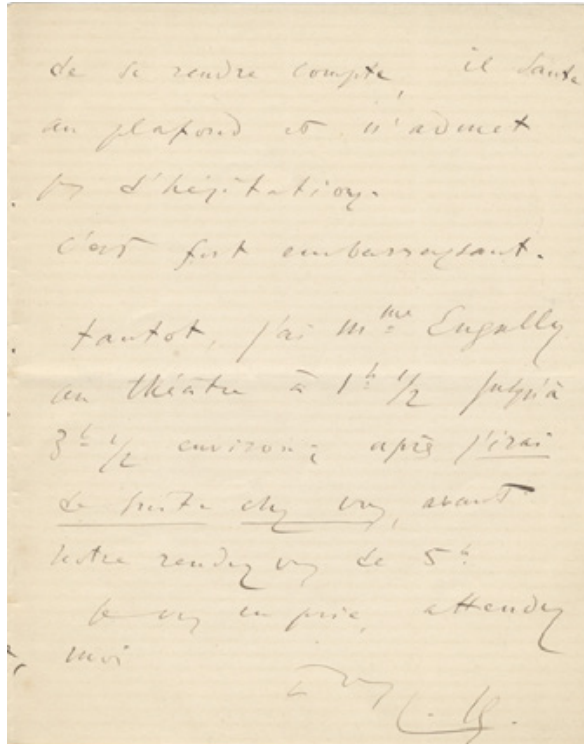 de se rendre compte, il saute
au plafond et n'admet
pas d'hésitation.
c'est fort embarrassant.
tantot, j'ai Mme Engally
au théâtre à 1h 1/2 jusqu'à
3h 1/2 environ; après j'irai
de suite chez vous, avant
notre rendez vous de 5h.
Je vous en prie, attendez
moi